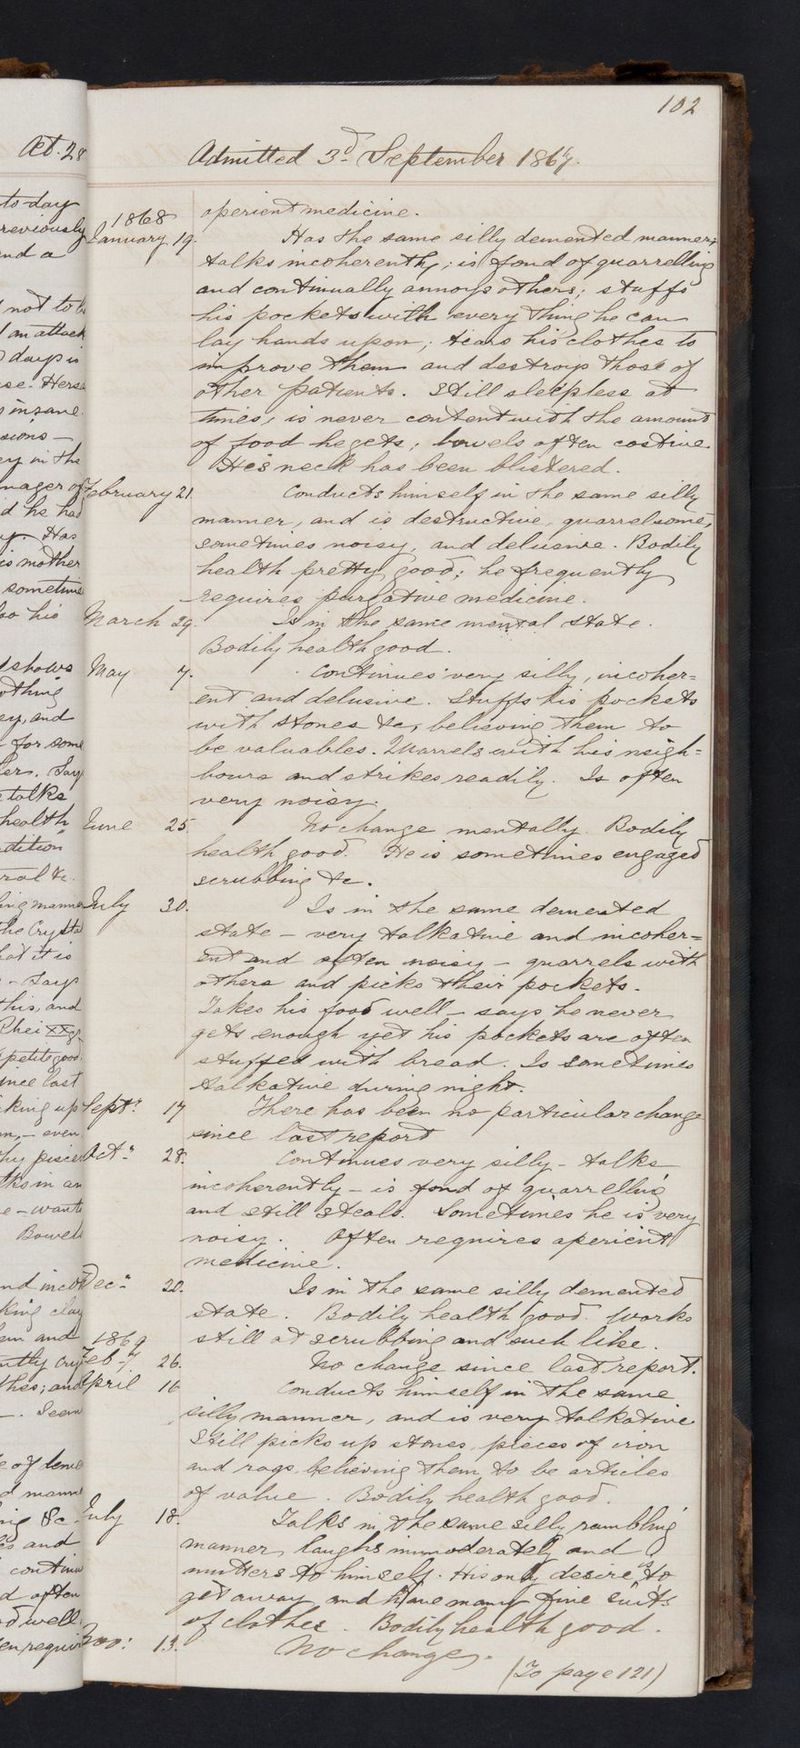 102
Æt. 28
Admitted 3d September 1867.
aperient medicine.
1868
January 19. Has the same silly demented manner;
talks incoherently; is fond of quarrelling
and continually annoys others; stuffs
his pockets with every thing he can
lay hands upon; tears his clothes to
improve them and destroys those of
other patients. Still sleepless at
times, is never content with the amount
of food he gets; bowels often costive.
His neck has been blistered.
February 21. Conducts himself in the same silly
manner, and is destructive, quarrelsome,
sometimes noisy, and delusive. Bodily
health pretty good; he frequently
requires purgative medicine.
March 29. Is in the same mental state.
Bodily health good.
May 7. Continues very silly, incoher=
ent and delusive. Stuffs his pockets
with stones &c, believing them to
be valuables. Quarrels with his neigh=
bours and strikes readily. Is often
very noisy.
June 25. No change mentally. Bodily
health good. He is sometimes engaged
scrubbing &c.
July 30. Is in the same demented
state – very talkative and incoher=
ent and often noisy – quarrels with
others and picks their pockets.
Takes his food well – says he never
gets enough yet his pockets are often
stuffed with bread. Is sometimes
talkative during night.
Septr 17 There has been no particular change
since last report
Octr 28. Continues very silly – talks
incoherently – is fond of quarrelling
and still steals. Sometimes he is very
noisy. Often requires aperient
medicine.
Decr 20. Is in the same silly demented
state. Bodily health good. Works
still at scrubbing and such like.
1869
Feby 26. No change since last report.
April 16 Conducts himself in the same
silly manner, and is very talkative
Still picks up stones, pieces of iron
and rags believing them to be articles
of value. Bodily health good.
July 18. Talks in the same silly rambling
manner, laughs immoderately and
mutters to himself. His only desire is to
get away and have many fine suits
of clothes. Bodily health good.
Nov: 13. No change.
(To page 121)